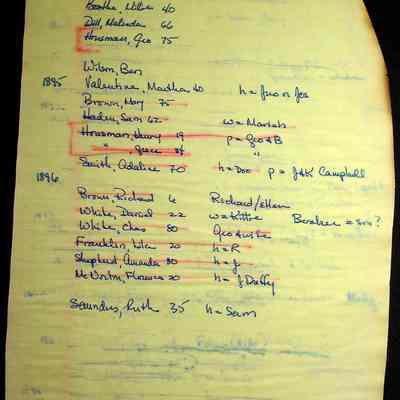 Boothe, Milas 40
Dill, Malinda 66
Housman, Geo 75
Wilson, Ben
1895 Valentine, Martha 60 h = Jno or Jos
Brown, Mary 75
Haden, Sam 62 w = Mariah
Housman, Henry 19 p = Geo & B
" Grace 24 "
Smith, Adaline 70 h = Doc p = J&K Campbell
1896
Brown, Richard 6 Richard/Ellen
White, David 22 w = Kittie
White, Chas 80 Geo
Franklin, 20 h = R
Shepherd, Amanda 30 h = J
McNorton, Florence 20 h = J Duffy
Saunders, Ruth 35 h = Sam